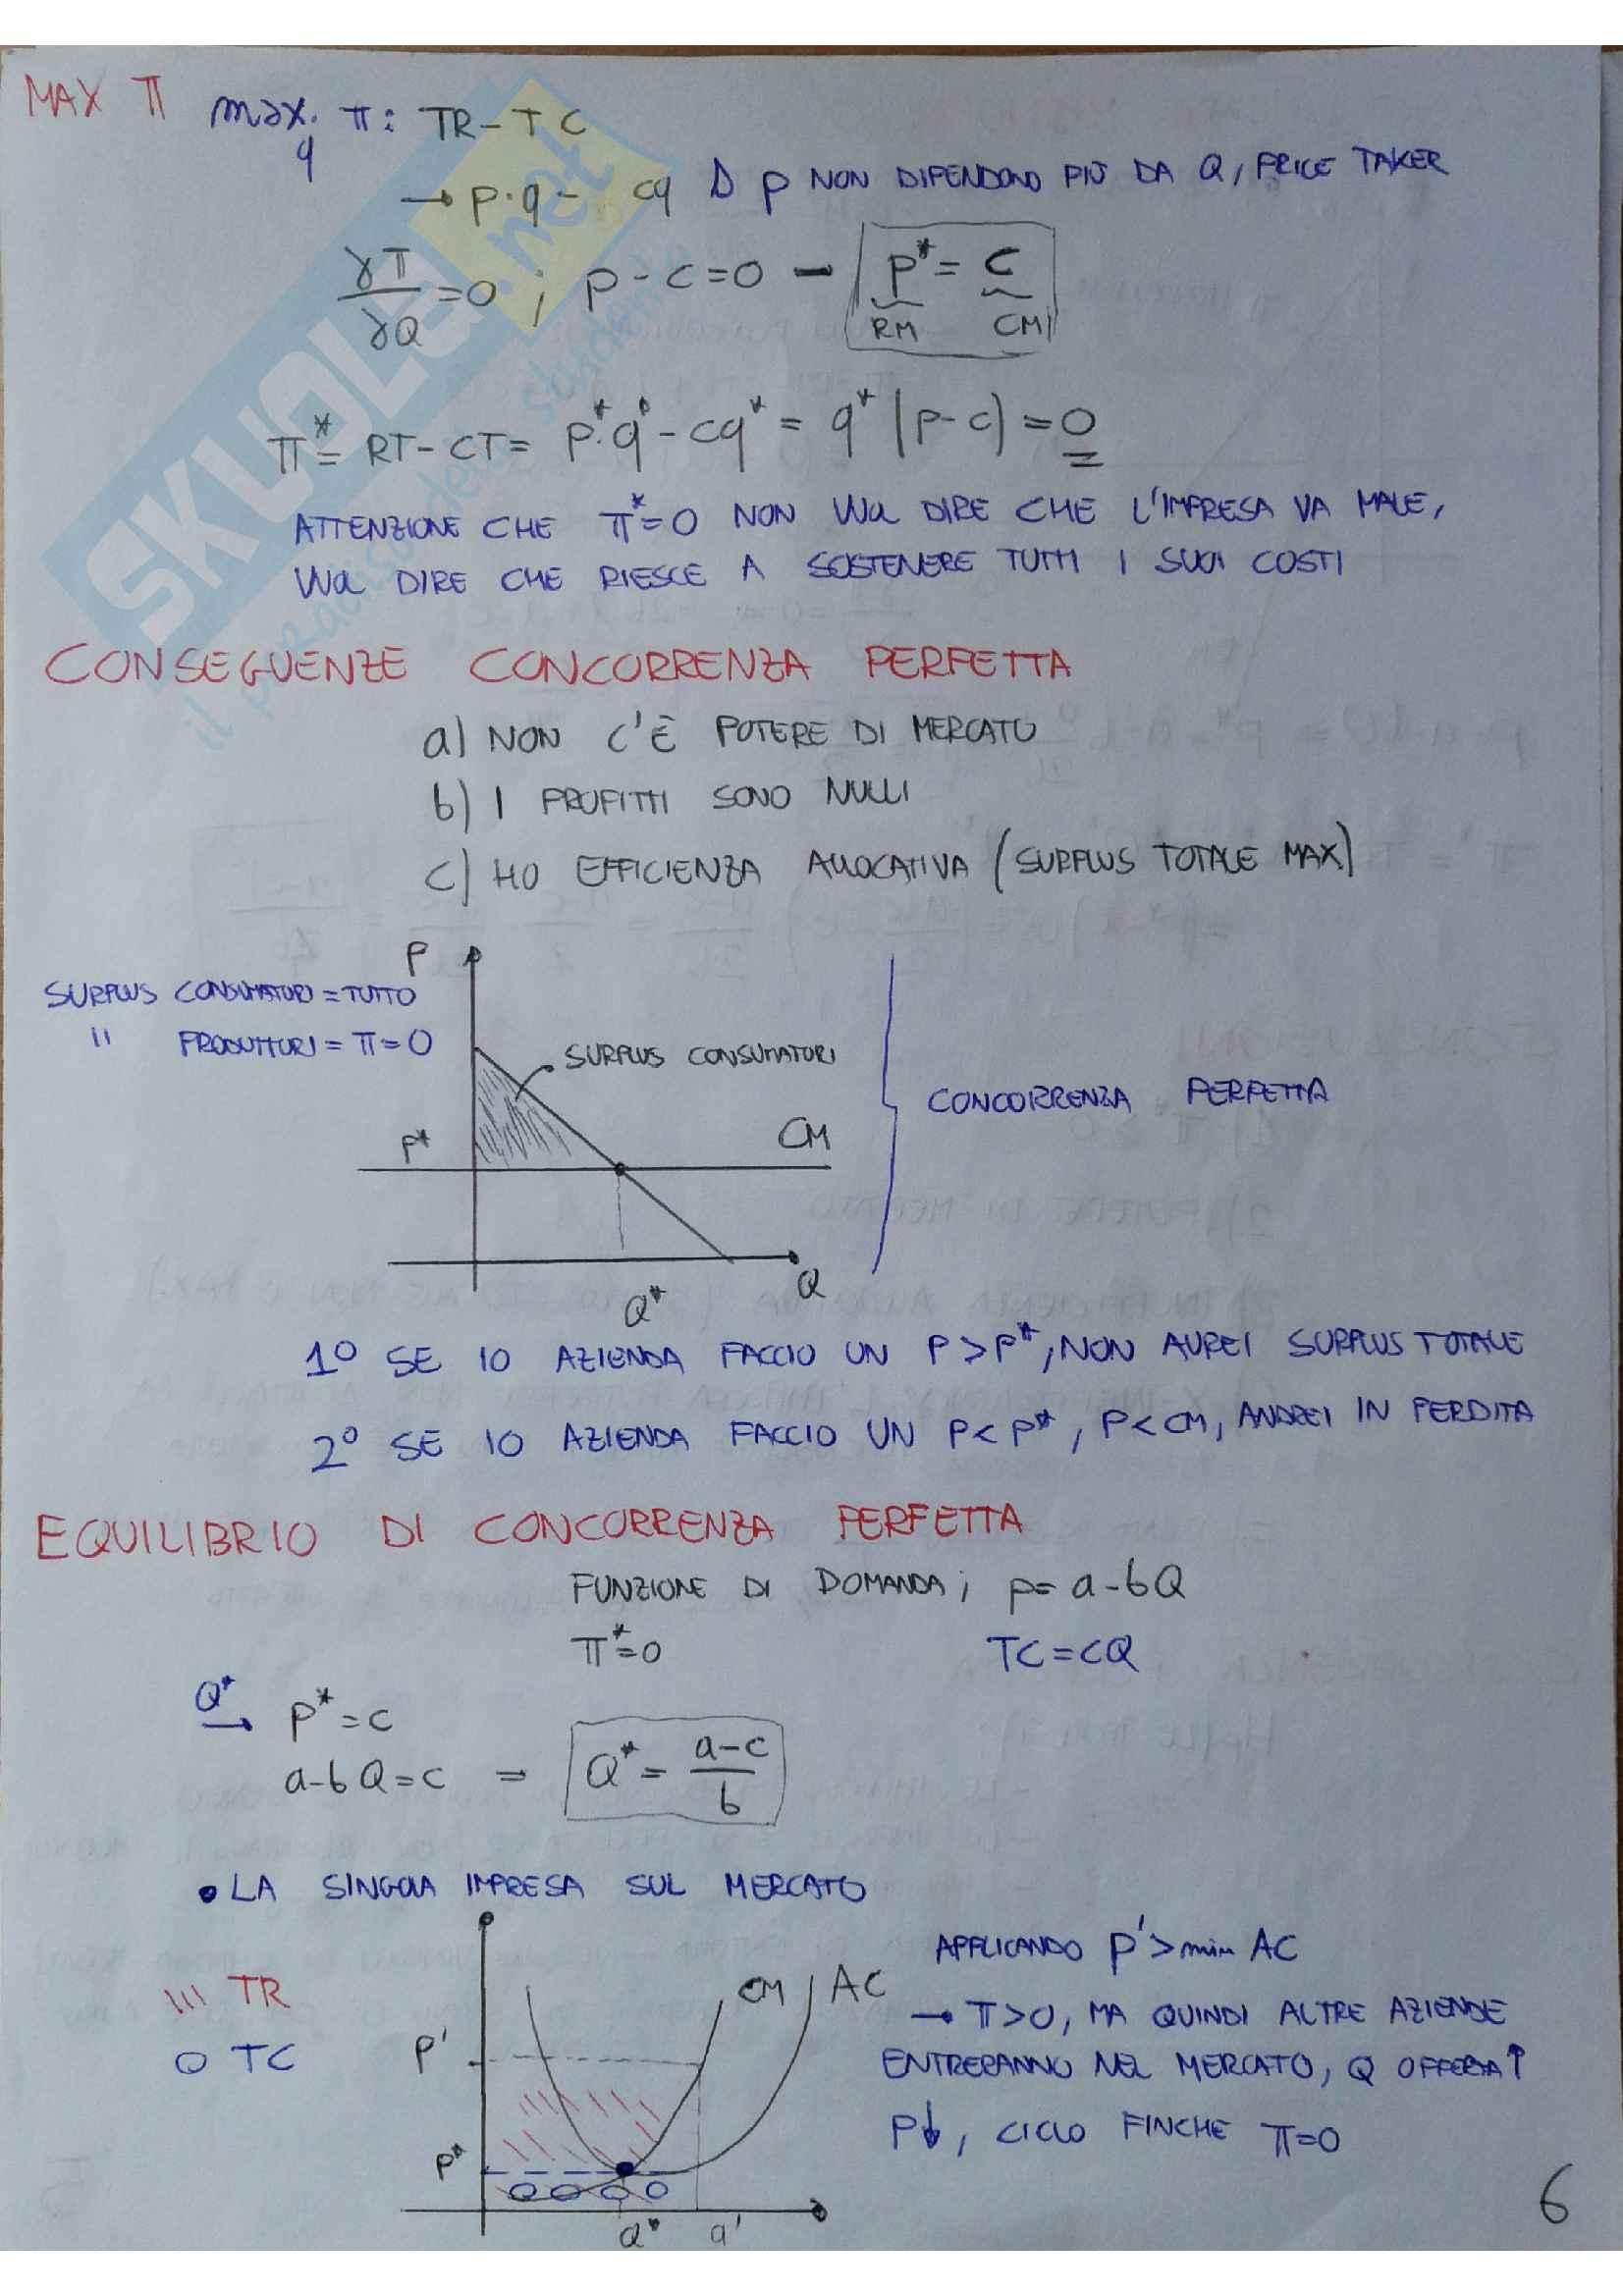 MAX π max. π: TR - TC
q
→ p·q - cq Δ p NON DIPENDONO PIÙ DA Q, PRICE TAKER
γT/γQ = 0 ; p - c = 0 - p* = c
RM CM
π* = RT - CT = p*·q* - cq* = q* (p-c) = 0
ATTENZIONE CHE π*=0 NON VUOL DIRE CHE L'IMPRESA VA MALE,
VUOL DIRE CHE RIESCE A SOSTENERE TUTTI I SUOI COSTI
CONSEGUENZE CONCORRENZA PERFETTA
a) NON C'È POTERE DI MERCATO
b) I PROFITTI SONO NULLI
c) HO EFFICIENZA ALLOCATIVA (SURPLUS TOTALE MAX)
P
SURPLUS CONSUMATORI = TUTTO
" PRODUTTORI = π = 0
SURPLUS CONSUMATORI
CONCORRENZA PERFETTA
P* CM
Q
Q*
1° SE IO AZIENDA FACCIO UN P > P*, NON AVREI SURPLUS TOTALE
2° SE IO AZIENDA FACCIO UN P < P*, P < CM, ANDREI IN PERDITA
EQUILIBRIO DI CONCORRENZA PERFETTA
FUNZIONE DI DOMANDA ; p = a - bQ
π* = 0 TC = CQ
Q* → P* = c
a - bQ = c = Q* = (a-c)/b
• LA SINGOLA IMPRESA SUL MERCATO
APPLICANDO P' > min AC
\\\ TR CM AC
→ π > 0, MA QUINDI ALTRE AZIENDE
O TC P'
ENTRERANNO NEL MERCATO, Q OFFERTA ↑
P↓, CICLO FINCHE π = 0
P*
Q* Q'
6
SKUOLA.net
il paradiso dello studente